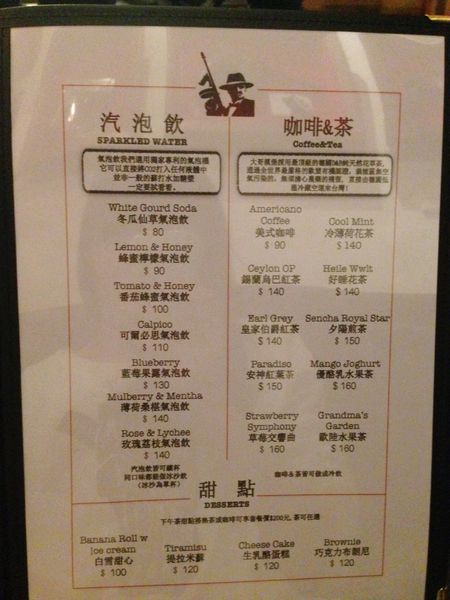 汽泡飲
SPARKLED WATER
氣泡飲我們選用獨家專利的氣泡機
它可以直接將CO2打入任何液體中
並非一般的蘇打水加糖漿
一定要試看看。
White Gourd Soda
冬瓜仙草氣泡飲
$ 80
Lemon & Honey
蜂蜜檸檬氣泡飲
$ 90
Tomato & Honey
番茄蜂蜜氣泡飲
$ 100
Calpico
可爾必思氣泡飲
$ 110
Blueberry
藍莓果露氣泡飲
$ 130
Mulberry & Mentha
薄荷桑椹氣泡飲
$ 140
Rose & Lychee
玫瑰荔枝氣泡飲
$ 140
汽泡飲皆可續杯
同口味都能做冰沙飲
(冰沙為單杯)
咖啡&茶
Coffee&Tea
Americano
Coffee
美式咖啡
$ 90
Cool Mint
冷薄荷花茶
$ 140
Ceylon OP
錫蘭烏巴紅茶
$ 140
Heile Wwlt
好睡花茶
$ 140
Earl Grey
皇家伯爵紅茶
$ 140
Sencha Royal Star
夕陽煎茶
$ 150
Paradiso
安神紅葉茶
$ 150
Mango Joghurt
優酪乳水果茶
$ 160
Strawberry
Symphony
草莓交響曲
$ 160
Grandma's
Garden
歐陸水果茶
$ 160
咖啡&茶皆可做成冷飲
甜點
DESSERTS
下午茶甜點搭熱茶或咖啡可享套餐價$200元,茶可任選
Banana Roll w
ice cream
白雪甜心
$ 100
Tiramisu
提拉米蘇
$ 120
Cheese Cake
生乳酪蛋糕
$ 120
Brownie
巧克力布朗尼
$ 120